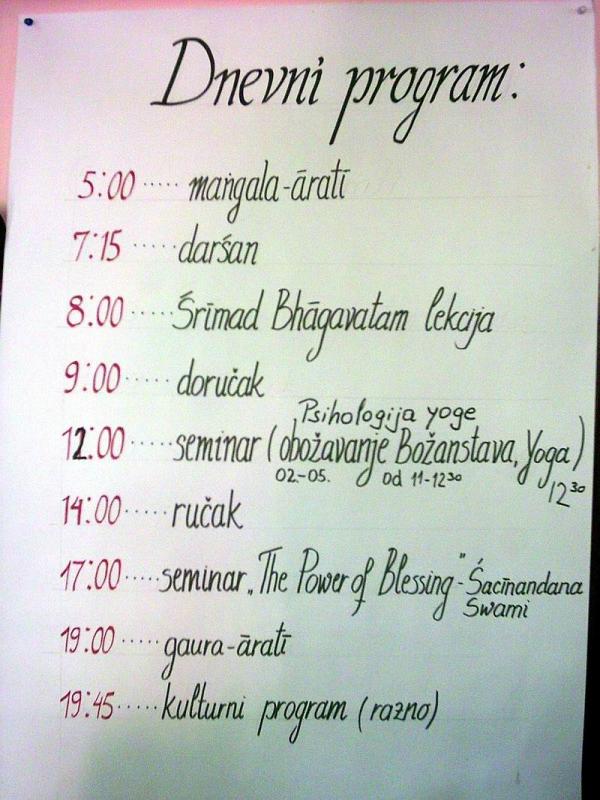 Dnevni program:
5:00 ..... maṅgala-āratī
7:15 ..... darśan
8:00 ..... Śrīmad Bhāgavatam lekcija
9:00 ..... doručak
Psihologija yoge
12:00 ..... seminar (obožavanje Božanstava, Yoga)
02.-05. od 11-12³⁰ 12³⁰
14:00 ..... ručak
17:00 ..... seminar „The Power of Blessing" - Śacīnandana
Swami
19:00 ..... gaura-āratī
19:45 ..... kulturni program (razno)